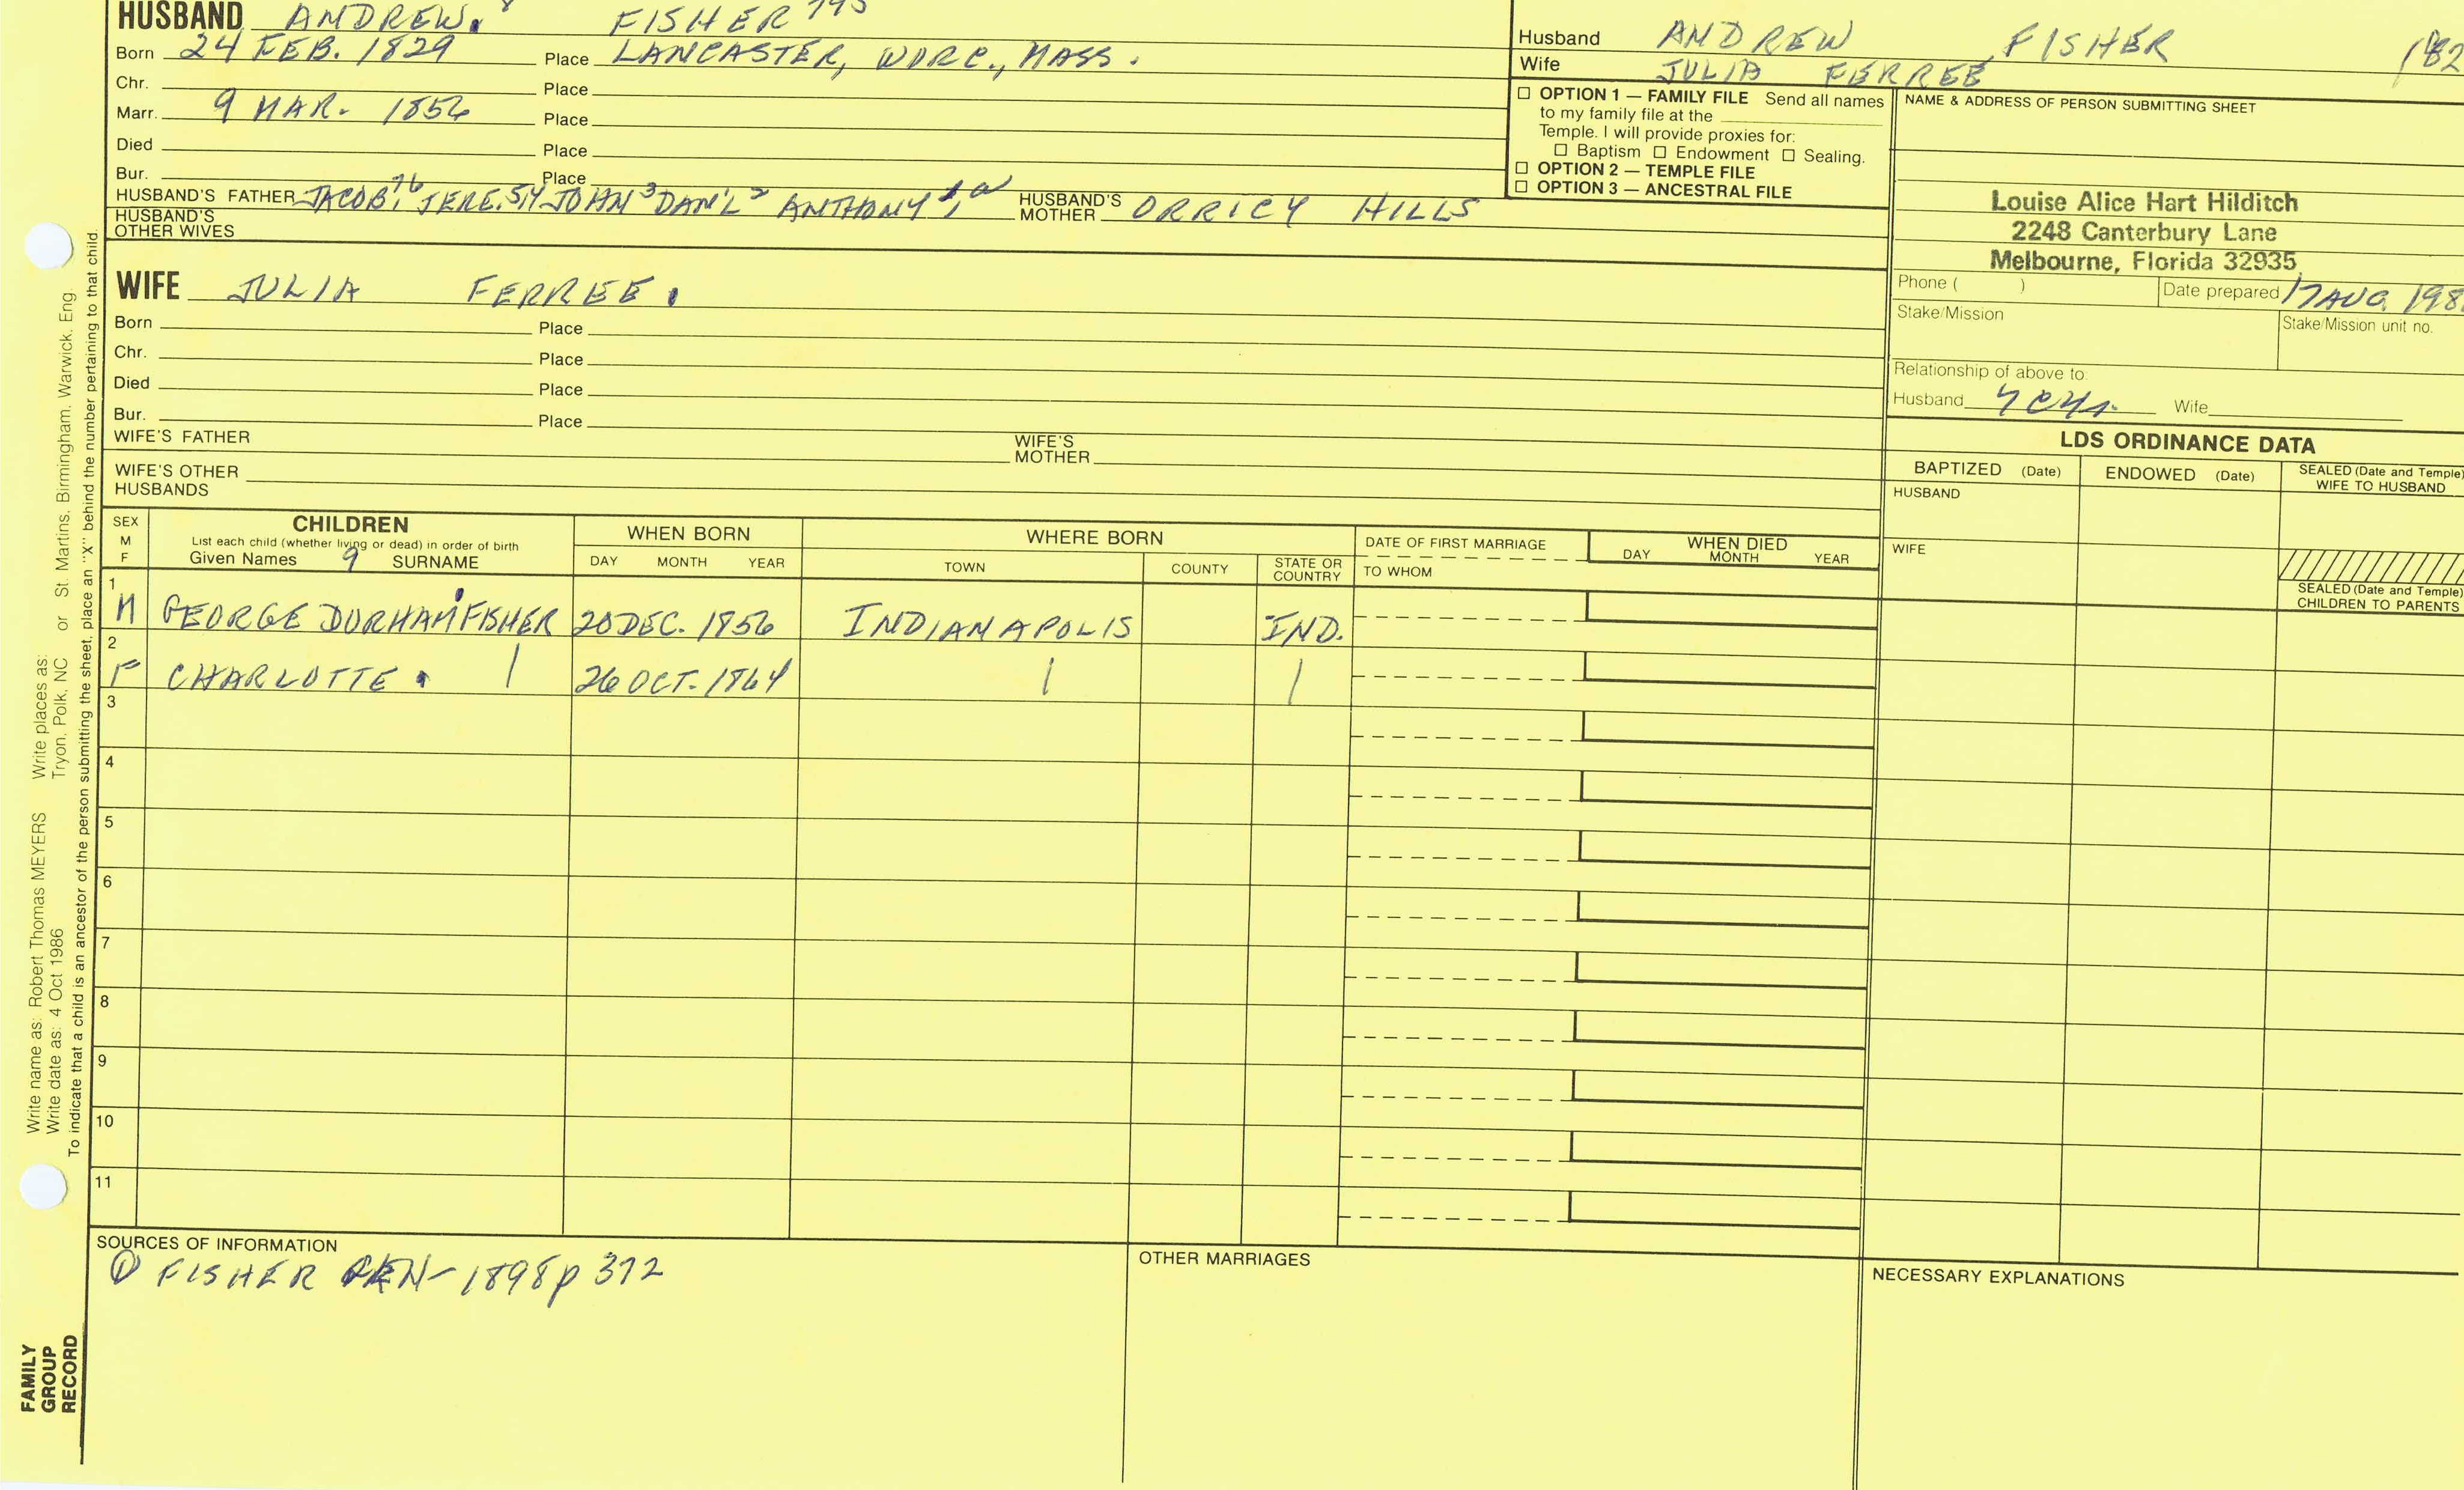 HUSBAND ANDREW. 8 FISHER 745
Born 24 FEB. 1829 Place LANCASTER, WORC., MASS.
Chr. Place
Marr. 9 MAR. 1856 Place
Died Place
Bur. Place
HUSBAND'S FATHER JACOB, JERE. JOHN 3 DAN'L 2 ANTHONY HUSBAND'S MOTHER ORRICY HILLS
HUSBAND'S OTHER WIVES
Husband ANDREW FISHER 182
Wife JULIA FERREE
☐ OPTION 1 — FAMILY FILE Send all names
to my family file at the
Temple. I will provide proxies for:
☐ Baptism ☐ Endowment ☐ Sealing.
☐ OPTION 2 — TEMPLE FILE
☐ OPTION 3 — ANCESTRAL FILE
NAME & ADDRESS OF PERSON SUBMITTING SHEET
Louise Alice Hart Hilditch
2248 Canterbury Lane
Melbourne, Florida 32935
Phone ( ) Date prepared 17 AUG. 198
Stake/Mission Stake/Mission unit no.
Relationship of above to:
Husband Wife
WIFE JULIA FERREE.
Born Place
Chr. Place
Died Place
Bur. Place
WIFE'S FATHER WIFE'S MOTHER
WIFE'S OTHER HUSBANDS
LDS ORDINANCE DATA
BAPTIZED (Date) ENDOWED (Date) SEALED (Date and Temple)
WIFE TO HUSBAND
HUSBAND
WIFE
SEALED (Date and Temple)
CHILDREN TO PARENTS
SEX M F
CHILDREN
List each child (whether living or dead) in order of birth
Given Names 9 SURNAME
WHEN BORN
DAY MONTH YEAR
WHERE BORN
TOWN COUNTY STATE OR COUNTRY
DATE OF FIRST MARRIAGE
TO WHOM
WHEN DIED
DAY MONTH YEAR
1 M GEORGE DURHAM FISHER 20 DEC. 1856 INDIANAPOLIS IND.
2 F CHARLOTTE. | 26 OCT. 1864 | |
3
4
5
6
7
8
9
10
11
SOURCES OF INFORMATION
① FISHER GEN-1898 p 372
OTHER MARRIAGES
NECESSARY EXPLANATIONS
Write name as: Robert Thomas MEYERS Write places as: St. Martins, Birmingham, Warwick, Eng.
Write date as: 4 Oct 1986 Tryon, Polk, NC or
To indicate that a child is an ancestor of the person submitting the sheet, place an "X" behind the number pertaining to that child.
FAMILY
GROUP
RECORD